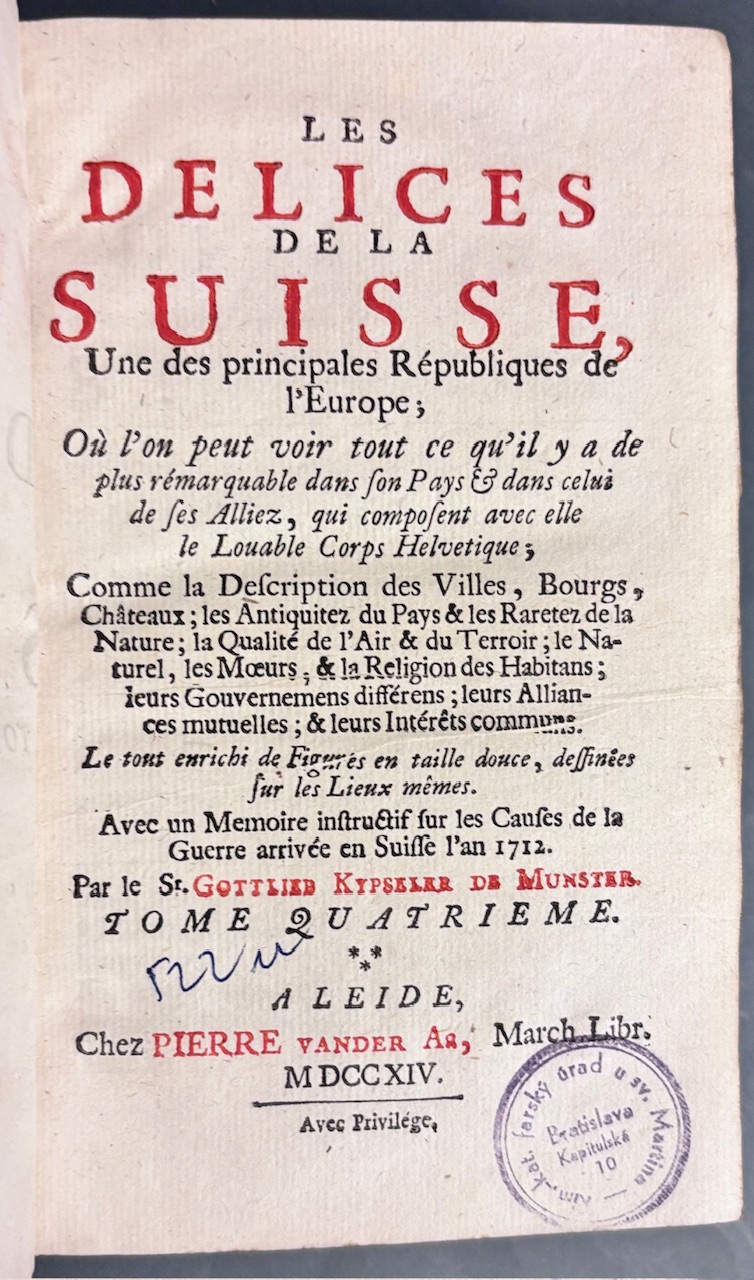 LES
DELICES
DE LA
SUISSE,
Une des principales Républiques de
l'Europe;
Où l'on peut voir tout ce qu'il y a de
plus rémarquable dans ſon Pays & dans celui
de ſes Alliez, qui compoſent avec elle
le Louable Corps Helvetique;
Comme la Deſcription des Villes, Bourgs,
Châteaux; les Antiquitez du Pays & les Raretez de la
Nature; la Qualité de l'Air & du Terroir; le Na-
turel, les Mœurs, & la Religion des Habitans;
leurs Gouvernemens différens; leurs Allian-
ces mutuelles; & leurs Intérêts communs.
Le tout enrichi de Figures en taille douce, deſſinées
ſur les Lieux mêmes.
Avec un Memoire inſtructif ſur les Cauſes de la
Guerre arrivée en Suiſſe l'an 1712.
Par le Sr. GOTTLIEB KYPSELER DE MUNSTER.
TOME QUATRIEME.
A LEIDE,
Chez PIERRE VANDER Aa, March. Libr.
MDCCXIV.
Avec Privilége.
Rím.-kat. farský úrad u sv. Martina
Bratislava
Kapitulská
10